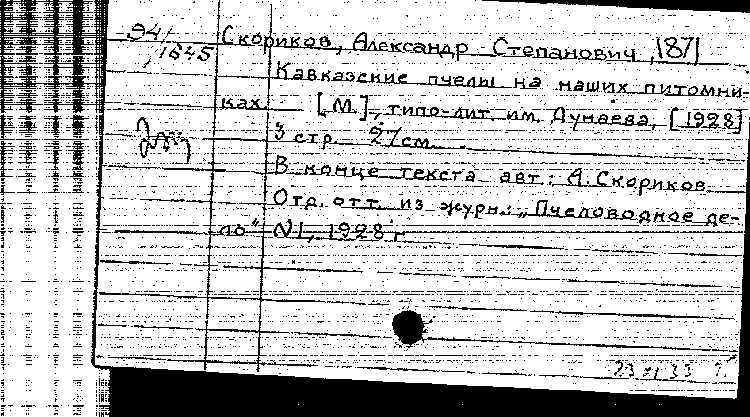 94/1645
Скориков, Александр Степанович, 1871
Кавказские пчелы на наших питомни-
ках. [М.], типо-лит. им. Дунаева, [1928]
3 стр. 27 см.
В конце текста авт.: А. Скориков.
Отд. отт. из журн.: „Пчеловодное де-
ло“ N1, 1928 г.